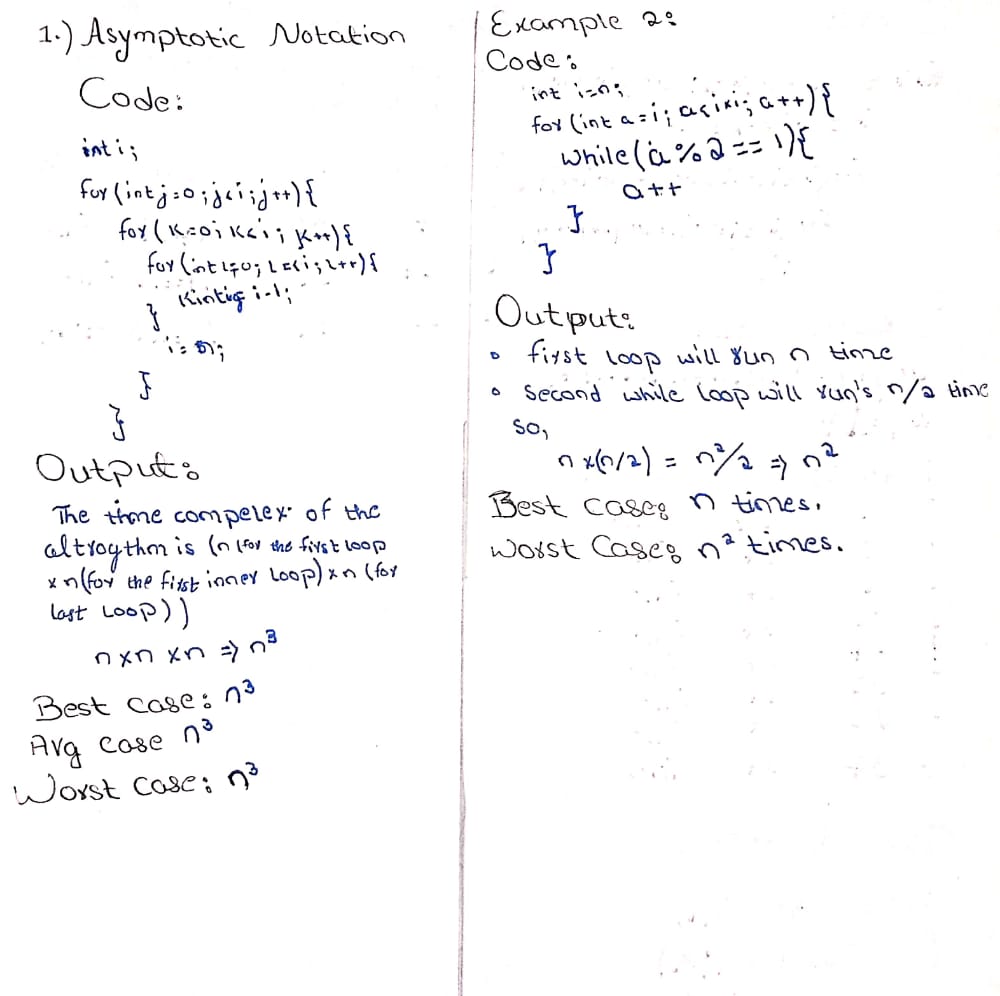 1.) Asymptotic Notation
Code:
int i;
for (int j=0; j<i; j++){
for (K=0; K<i; K++){
for (int l=0; L<i; L++){
i-1;
}
i= n;
}
}
Output:
The time compelex of the
altroythm is (n (for the first loop
x n(for the first inner Loop) x n (for
last Loop))
n x n x n => n³
Best Case: n³
Avg Case n³
Worst Case: n³
Example 2:
Code:
int i=n;
for (int a=i; a<i*i; a++){
while(a%2==1){
a++
}
}
Output:
first loop will run n time
second while loop will run's n/2 time
so,
n x(n/2) = n²/2 => n²
Best Case: n times.
Worst Case: n² times.